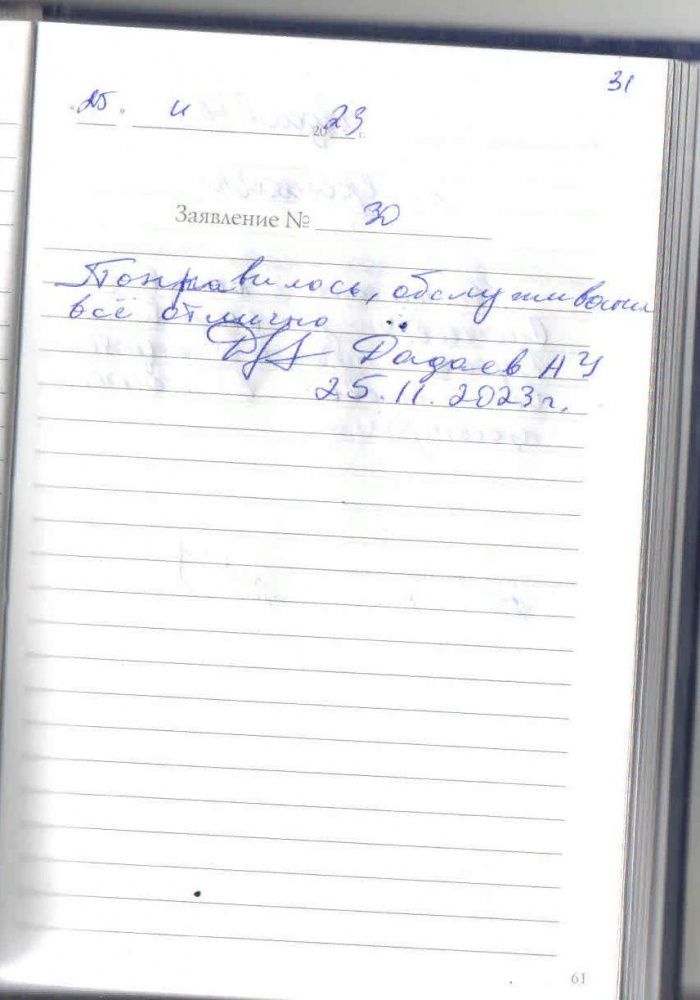 31
"25" 11 2023 г.
Заявление № 30
Понравилось, обслуживание
всё отлично
Дадаев А Ц
25.11.2023г.
61